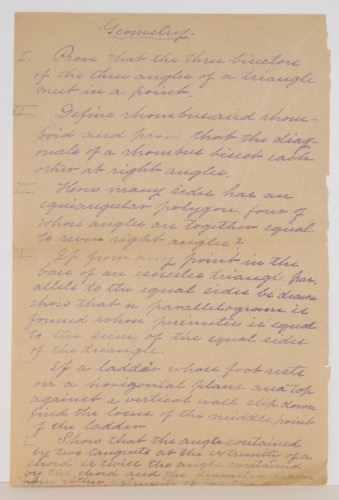 Geometry.
I. Prove that the three bisectors
of the three angles of a triangle
meet in a point.
II. Define rhombus and rhom-
boid and prove that the diag-
onals of a rhombus bisect each
other at right angles.
III. How many sides has an
equiangular polygon, four of
whose angles are together equal
to seven right angles?
If from any point in the
base of an isosceles triangle par-
allels to the equal sides be drawn
show that a parallelogram is
formed whose perimeter is equal
to the sum of the equal sides
of the triangle.
If a ladder whose foot rests
on a horizontal plane and top
against a vertical wall slip down
find the locus of the middle point
of the ladder.
Show that the angle contained
by two tangents at the extremity of a
chord is twice the angle contained
by the chord and the diameter drawn
from either extremity of the